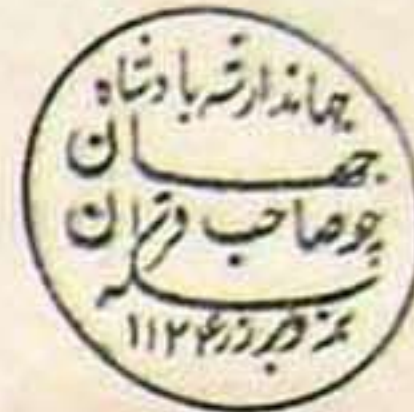 جهاندار شه بادشاه
جهان
چو صاحب قران
سکه
بزد بر زر ۱۱۲۴